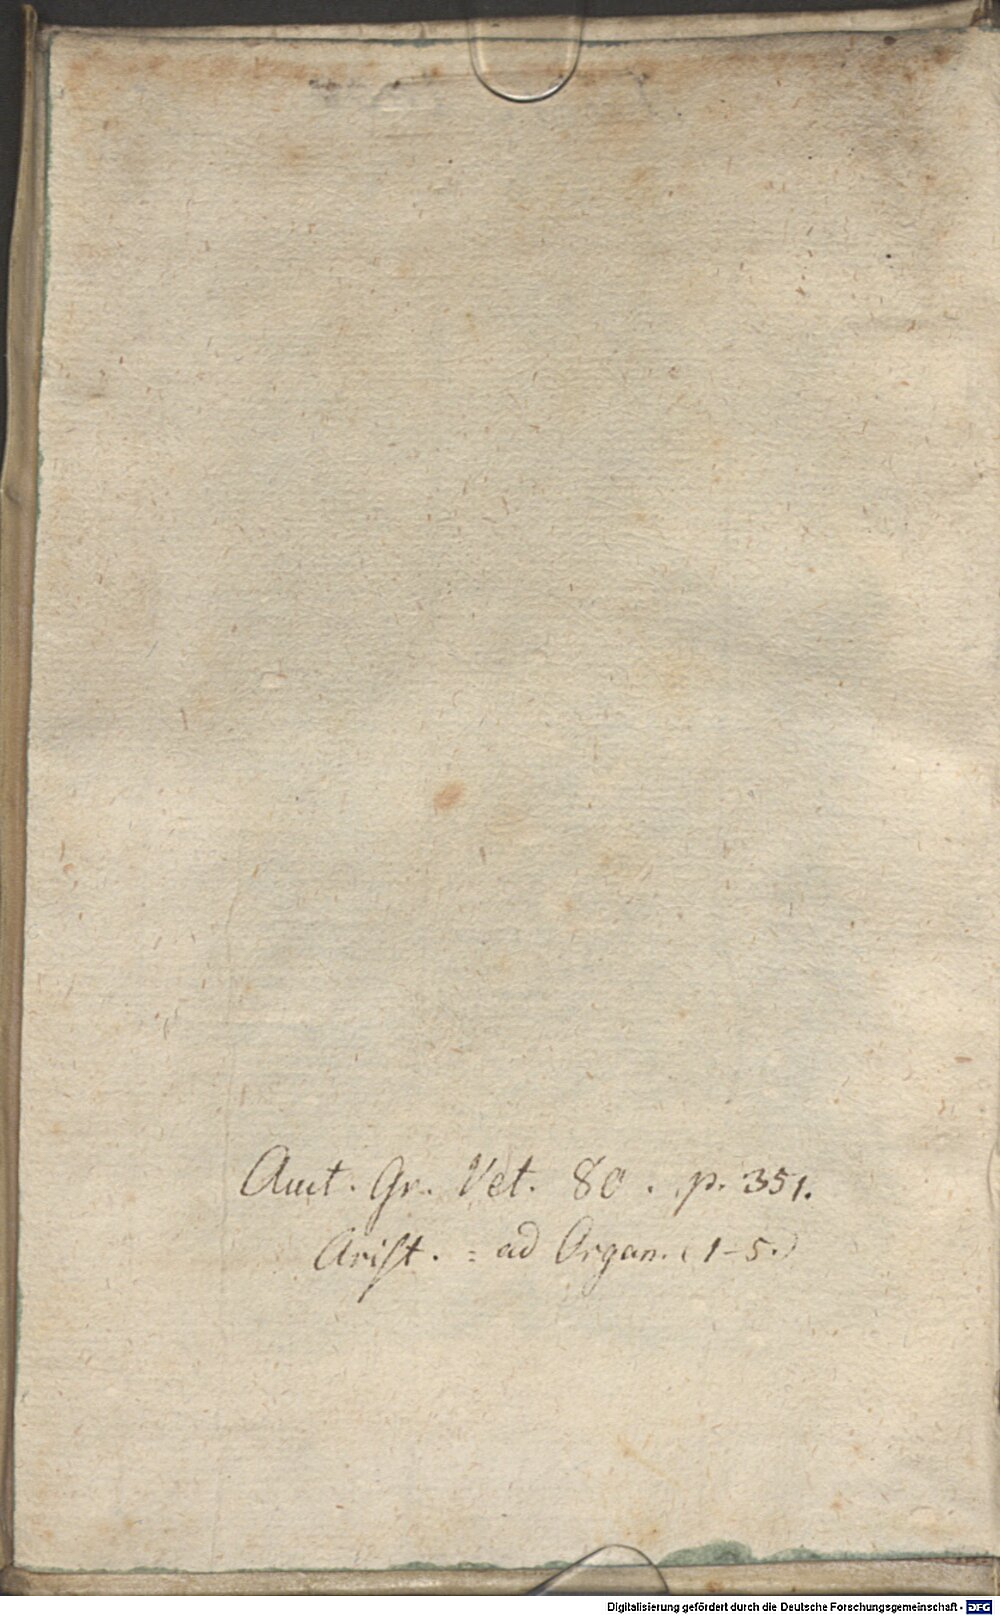 Auct. Gr. Vet. 80. p. 351.
Arist. = ad Organ. (1-5.)
Digitalisierung gefördert durch die Deutsche Forschungsgemeinschaft - DFG